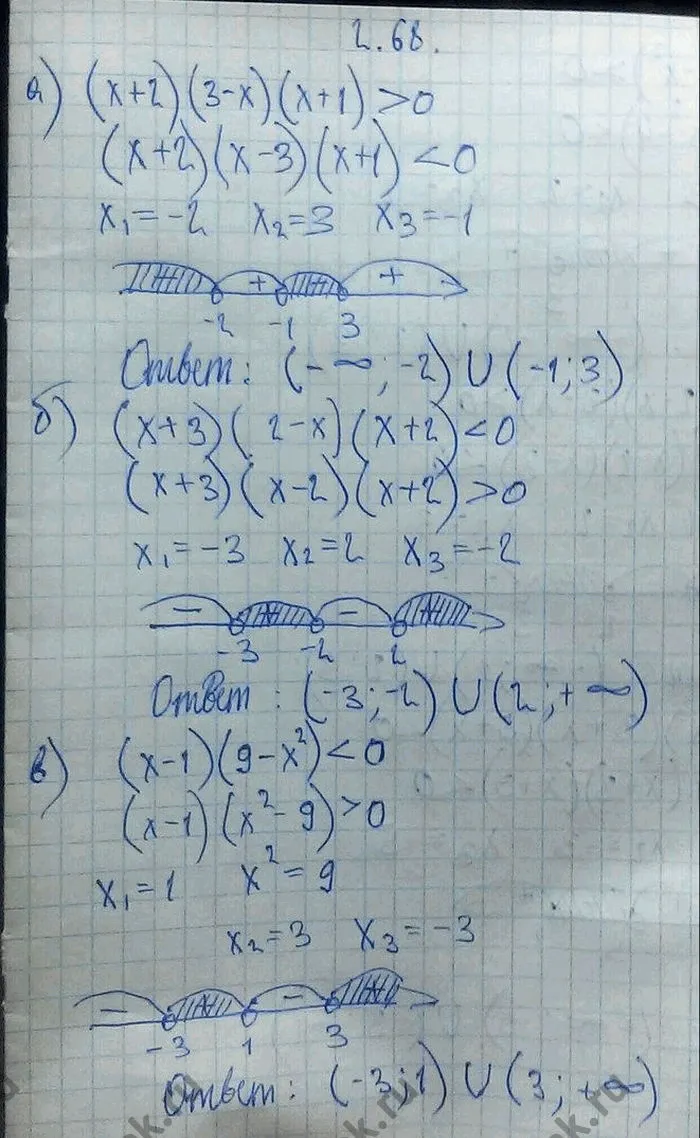 2.68.
а) (x+2)(3-x)(x+1)>0
(x+2)(x-3)(x+1)<0
x₁=-2 x₂=3 x₃=-1
+ +
-2 -1 3
Ответ: (-∞;-2)∪(-1;3)
б) (x+3)(2-x)(x+2)<0
(x+3)(x-2)(x+2)>0
x₁=-3 x₂=2 x₃=-2
- + - +
-3 -2 2
Ответ: (-3;-2)∪(2;+∞)
в) (x-1)(9-x²)<0
(x-1)(x²-9)>0
x₁=1 x²=9
x₂=3 x₃=-3
- + - +
-3 1 3
Ответ: (-3;1)∪(3;+∞)